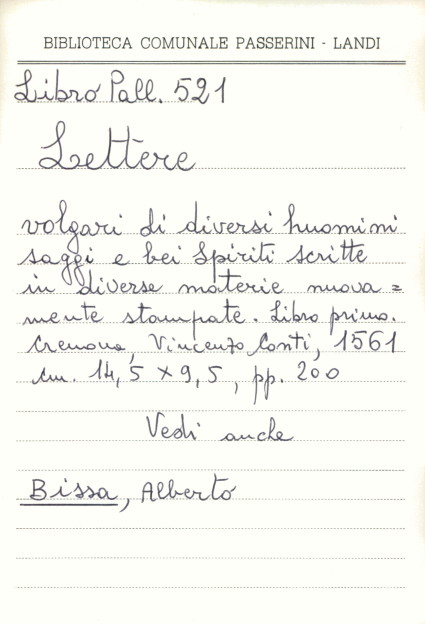 BIBLIOTECA COMUNALE PASSERINI - LANDI
Libro Pall. 521
Lettere
volgari di diversi huomini
saggi e bei Spiriti scritte
in diverse materie nuova =
mente stampate. Libro primo.
Cremona, Vincenzo Conti, 1561
cm. 14,5 x 9,5, pp. 200
Vedi anche
Bissa, Alberto